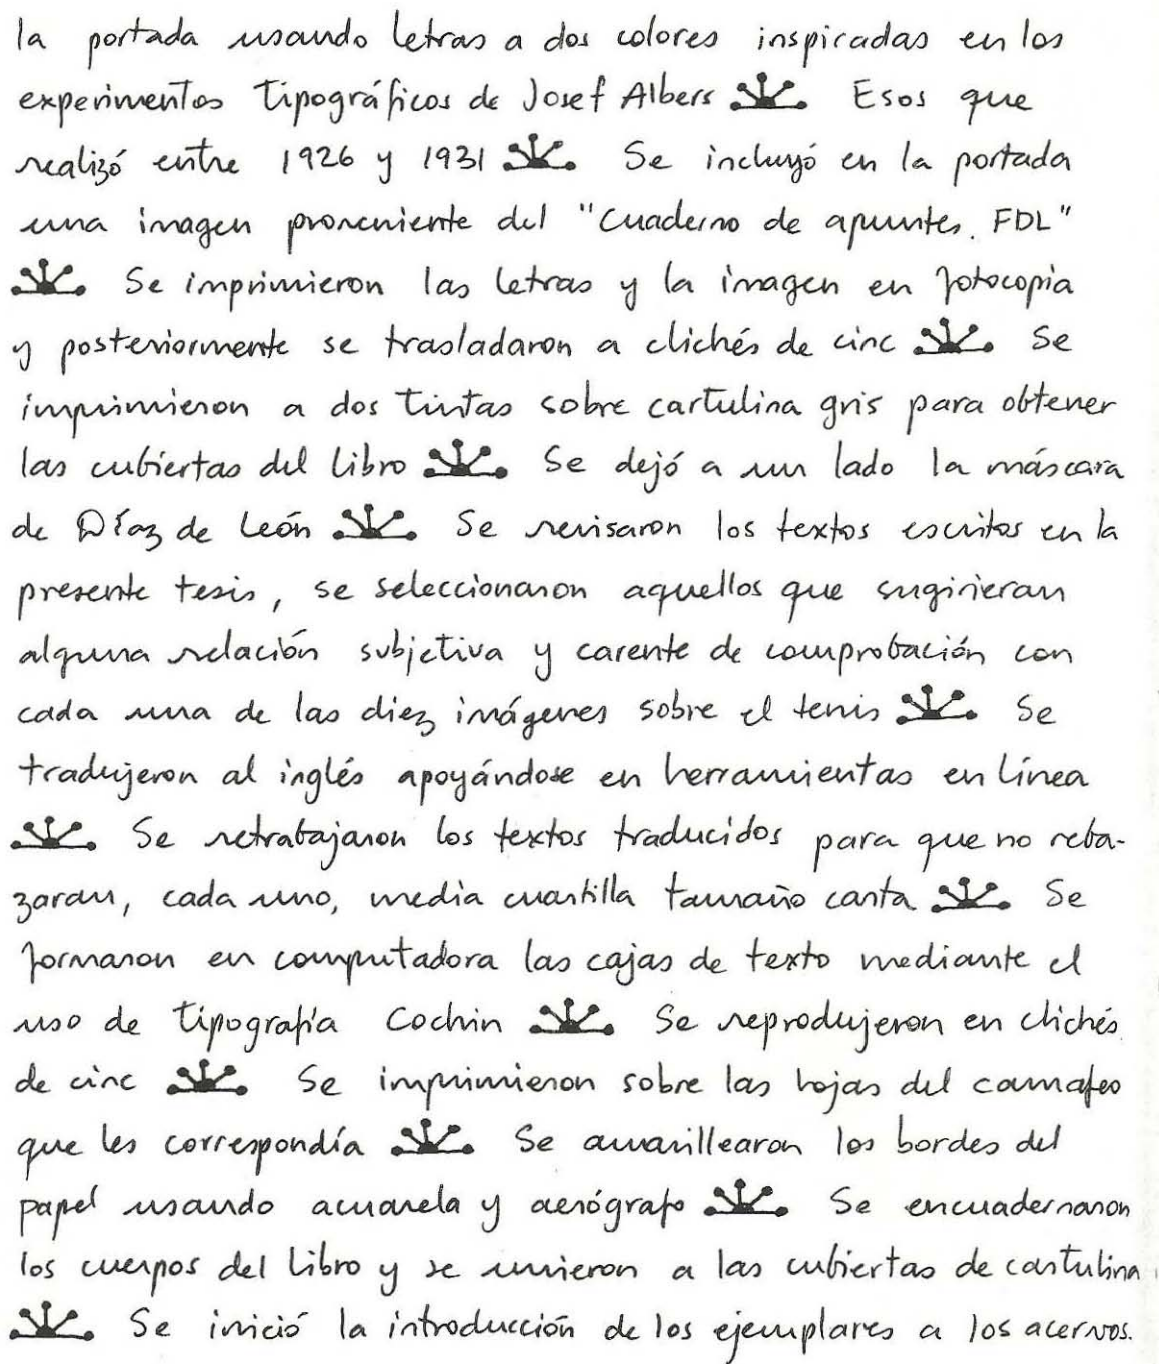 la portada usando letras a dos colores inspiradas en los
experimentos tipográficos de Josef Albers Esos que
realizó entre 1926 y 1931 Se incluyó en la portada
una imagen proveniente del "Cuaderno de apuntes. FDL"
Se imprimieron las letras y la imagen en fotocopia
y posteriormente se trasladaron a clichés de cinc Se
imprimieron a dos tintas sobre cartulina gris para obtener
las cubiertas del libro Se dejó a un lado la máscara
de Díaz de León Se revisaron los textos escritos en la
presente tesis, se seleccionaron aquellos que sugirieran
alguna relación subjetiva y carente de comprobación con
cada una de las diez imágenes sobre el tenis Se
tradujeron al inglés apoyándose en herramientas en línea
Se retrabajaron los textos traducidos para que no reba-
zaran, cada uno, media cuartilla tamaño carta Se
formaron en computadora las cajas de texto mediante el
uso de tipografía Cochin Se reprodujeron en clichés
de cinc Se imprimieron sobre las hojas del camafeo
que les correspondía Se amarillearon los bordes del
papel usando acuarela y aerógrafo Se encuadernaron
los cuerpos del libro y se unieron a las cubiertas de cartulina
Se inició la introducción de los ejemplares a los acervos.